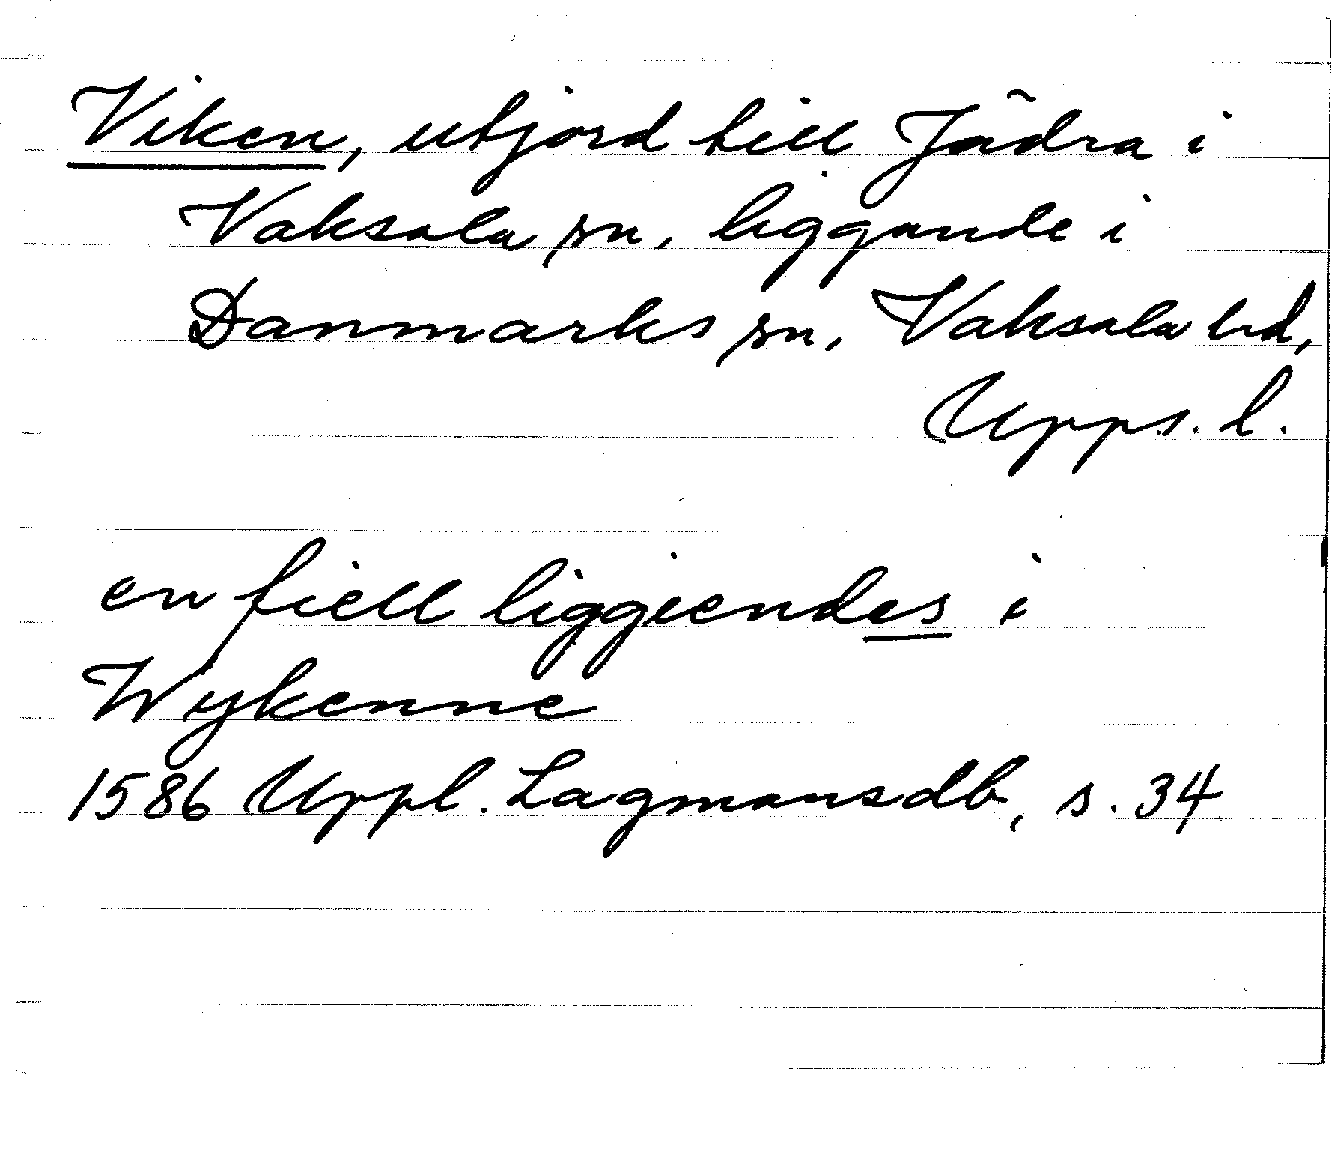 Viken, utjord till Jädra i
Vaksala sn, liggande i
Danmarks sn, Vaksala hd,
Upps. l.
en fiell liggiendes i
Wykenne
1586 Uppl. Lagmansdb, s. 34